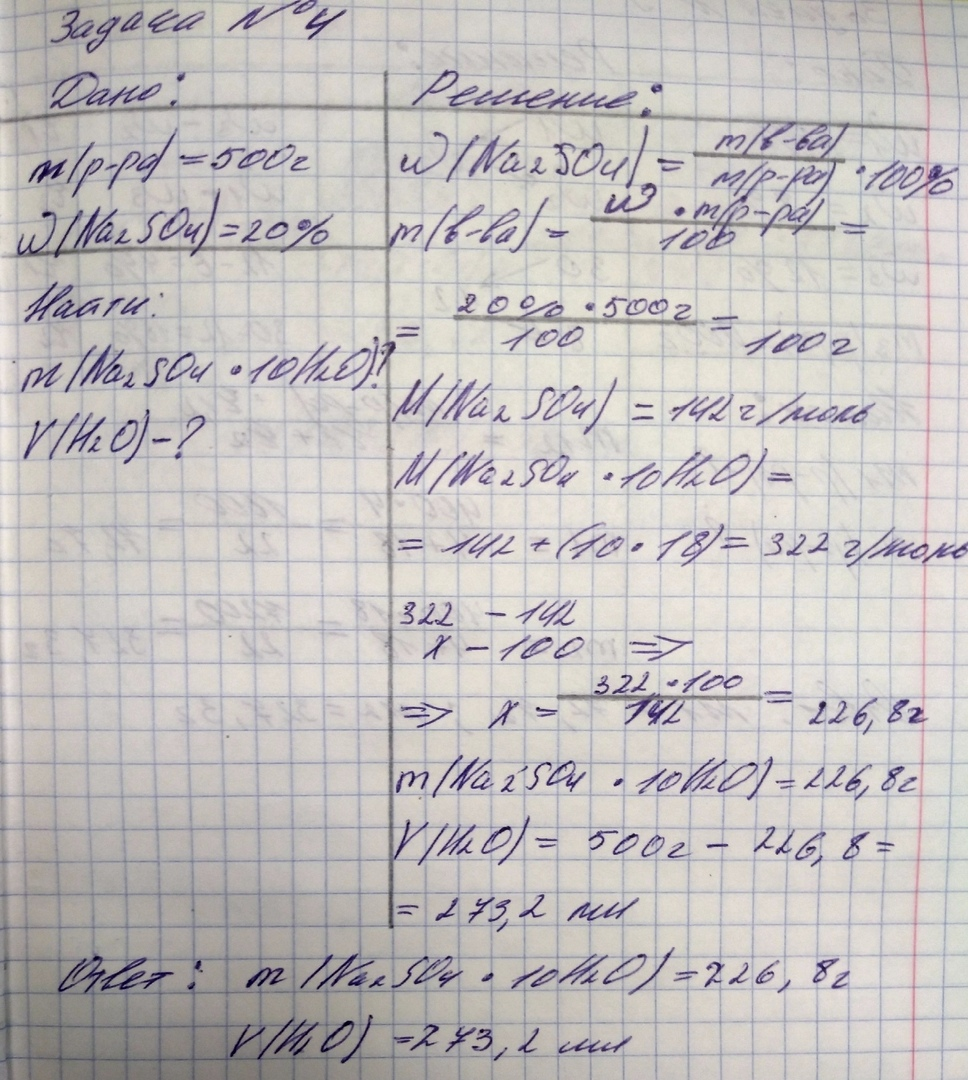 Задача №4
Дано:
m(р-ра) = 500г
ω(Na₂SO₄) = 20%
Найти:
m(Na₂SO₄ · 10H₂O)?
V(H₂O) - ?
Решение:
ω(Na₂SO₄) = m(в-ва) / m(р-ра) · 100%
m(в-ва) = ω · m(р-ра) / 100 =
= 20% · 500г / 100 = 100г
M(Na₂SO₄) = 142 г/моль
M(Na₂SO₄ · 10H₂O) =
= 142 + (10 · 18) = 322 г/моль
322 - 142
x - 100 ⇒
⇒ x = 322 · 100 / 142 = 226,8г
m(Na₂SO₄ · 10H₂O) = 226,8г
V(H₂O) = 500г - 226,8 =
= 273,2 мл
Ответ: m(Na₂SO₄ · 10H₂O) = 226,8г
V(H₂O) = 273,2 мл